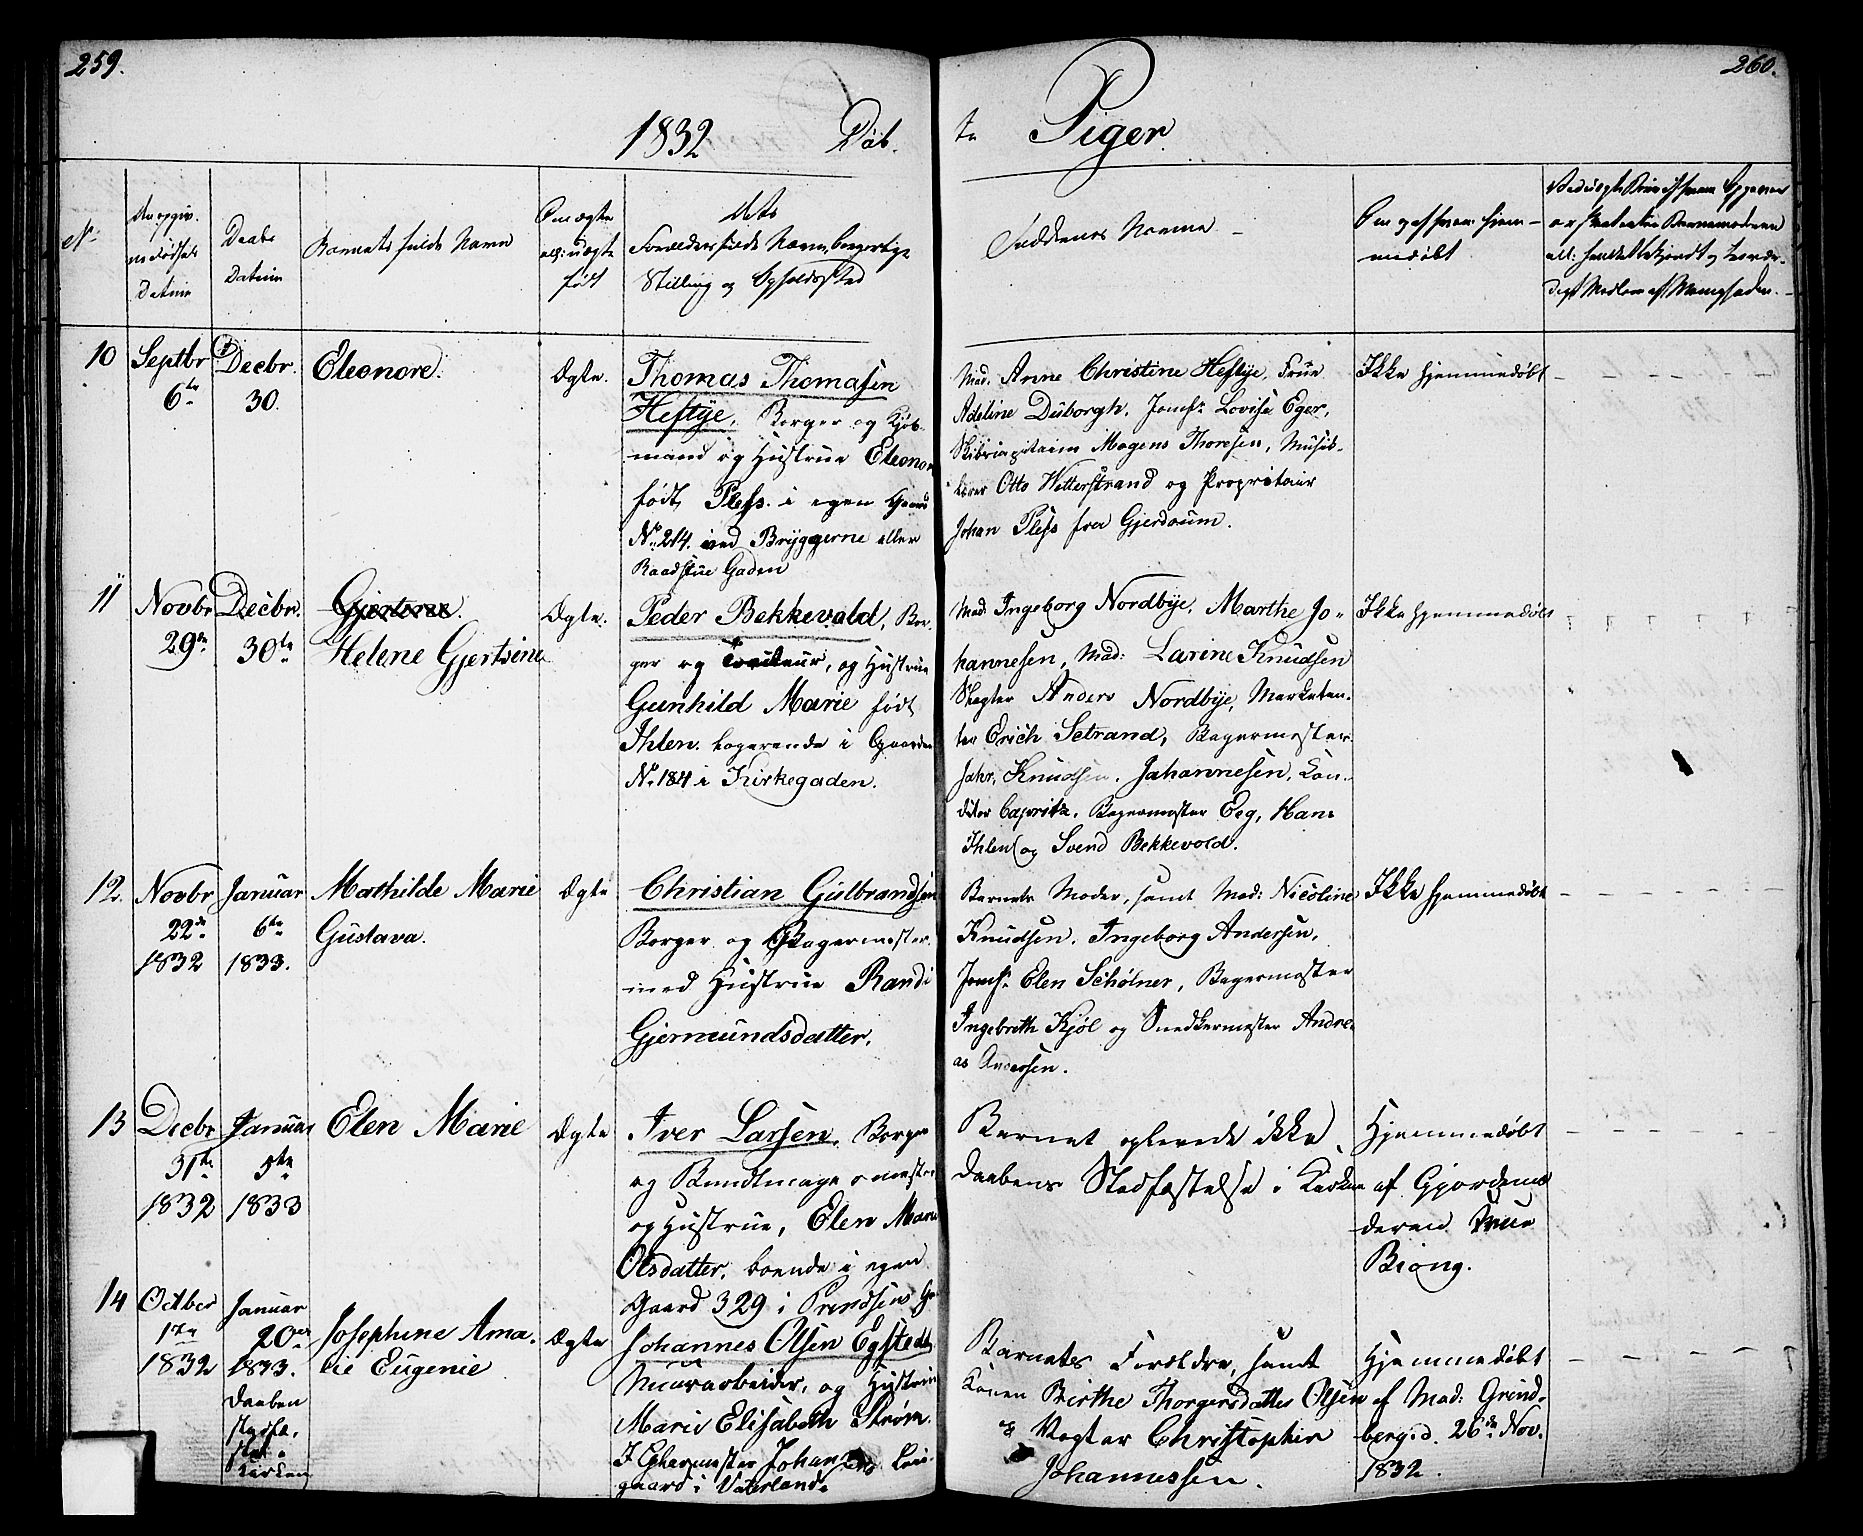 259.
260.
1832 Døb-
te Piger.
No
Den opgiv-
ne Fødsels
Datum
Daabs
Datum
Barnets fulde Navn
Om ægte
ell: uægte
født
dets
Forældres fulde Navn, borgerlige
Stilling og Opholdssted
Faddernes Navne
Om og af hvem hjem-
medøbt
10
Septbr
6te
Decbr.
30.
Eleonore.
Ægte.
Thomas Thomasen
Heftye, Borger og Kjøb-
mand og Hustrue Eleonor
født Pless. i egen Gaard
No 214. ved Bryggerne eller
Raadstue Gaden
Mad. Anne Christine Heftye, Frue
Adeline Duborgh, Jomfr Lovise Eger,
Skibscapitain Mogens Thoresen, Musik-
lærer Otto Wetterstrand og Proprietair
Johan Pless fra Gjerdrum.
Ikke hjemmedøbt
11
Novbr
29de
Decbr.
30te
Helene Gjertsine
Ægte.
Peder Bekkevold, Bor-
ger og, og Hustrue
Gunhild Marie født
Ihlen. logerende i Gaarden
No 184 i Kirkegaden.
Mad. Ingeborg Nordbye, Marthe Jo-
hannesen, Mad: Larine Knudsen
Slagter Anders Nordbye, Marketen-
ter Erich Setrand, Bagermester
Knudsen. Johannesen, Con-
ditor Capritz, Bagermester Eeg, Hans
Ihlen og Svend Bekkevold.
Ikke hjemmedøbt
12.
Novbr
22de
1832
Januar
6te
1833.
Mathilde Marie
Gustava.
Ægte
Christian Gulbrandsen
Borger og Bagermester
med Hustrue Randi
Gjermundsdatter.
Barnets Moder, samt Mad: Nicoline
Knudsen, Ingeborg Andersen,
Jomfr Elen Schølner, Bagermester
Ingebreth Kjøl og Snedkermester Andre-
as Andersen.
Ikke hjemmedøbt
13
Decbr
31te
1832
Januar
5te
1833
Elen Marie
Ægte
Iver Larsen, Borger
og Bundtmagermester
og Hustrue, Elen Marie
Olsdatter, boende i egen
Gaard 329 i Prindsens G
Barnet oplevede ikke
Daabens Stadfæstelse i Kirken
Hjemmedøbt
af Gjordemo
deren Mue
Biong.
14
Octber
1te
1832
Januar
20de
1833.
Daaben
stadfæ-
stet i
Kirken
Josephine Ama-
lie Eugenie
Ægte
Johannes Olsen Egstedt
Muurarbeider, og Hustrue
Marie Elisabeth Strøm.
gaard i Vaterland
Barnets Forældre, samt
Konen Birthe Thorgersdatter Olsen
og Vægter Christopher
Johannessen.
Hjemmedøbt
af Mad: Grind-
berg. d. 26de Nov.
1832.